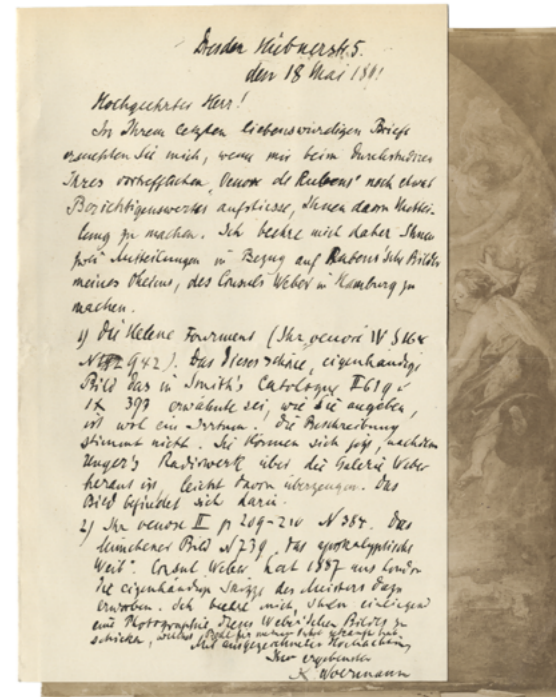 Dresden Hübnerstr. 5.
den 18 Mai 1891
Hochgeehrter Herr!
In Ihrem letzten liebenswürdigen Briefe
ersuchten Sie mich, wenn mir beim Durchstudiren
Ihres vortrefflichen „Oeuvre de Rubens" noch etwas
Berichtigenswertes aufstiesse, Ihnen davon Mittei-
lung zu machen. Ich beehre mich daher Ihnen
zwei Mitteilungen in Bezug auf Rubens'sche Bilder
meines Oheims, des Consuls Weber in Hamburg zu
machen.
1) Die Helene Fourment (Ihr oeuvre IV S 164
No 942). Dass dieses schöne, eigenhändige
Bild das in Smith's Catalogue II 619 u
IX 393 erwähnte sei, wie Sie angeben,
ist wol ein Irrtum. Die Beschreibung
stimmt nicht. Sie können sich jetzt, nachdem
Unger's Radirwerk über die Galerie Weber
heraus ist, leicht davon überzeugen. Das
Bild befindet sich darin.
2) Ihr oeuvre II p 209-210 N 384. Das
Münchener Bild N 739. „Das apokalyptische
Weib". Consul Weber hat 1887 aus London
die eigenhändige Skizze des Meisters dazu
erworben. Ich beehre mich, Ihnen einliegend
eine Photographie dieses Weber'schen Bildes zu
schicken, welches
Mit ausgezeichneter Hochachtung
Ihr ergebenster
K Woermann